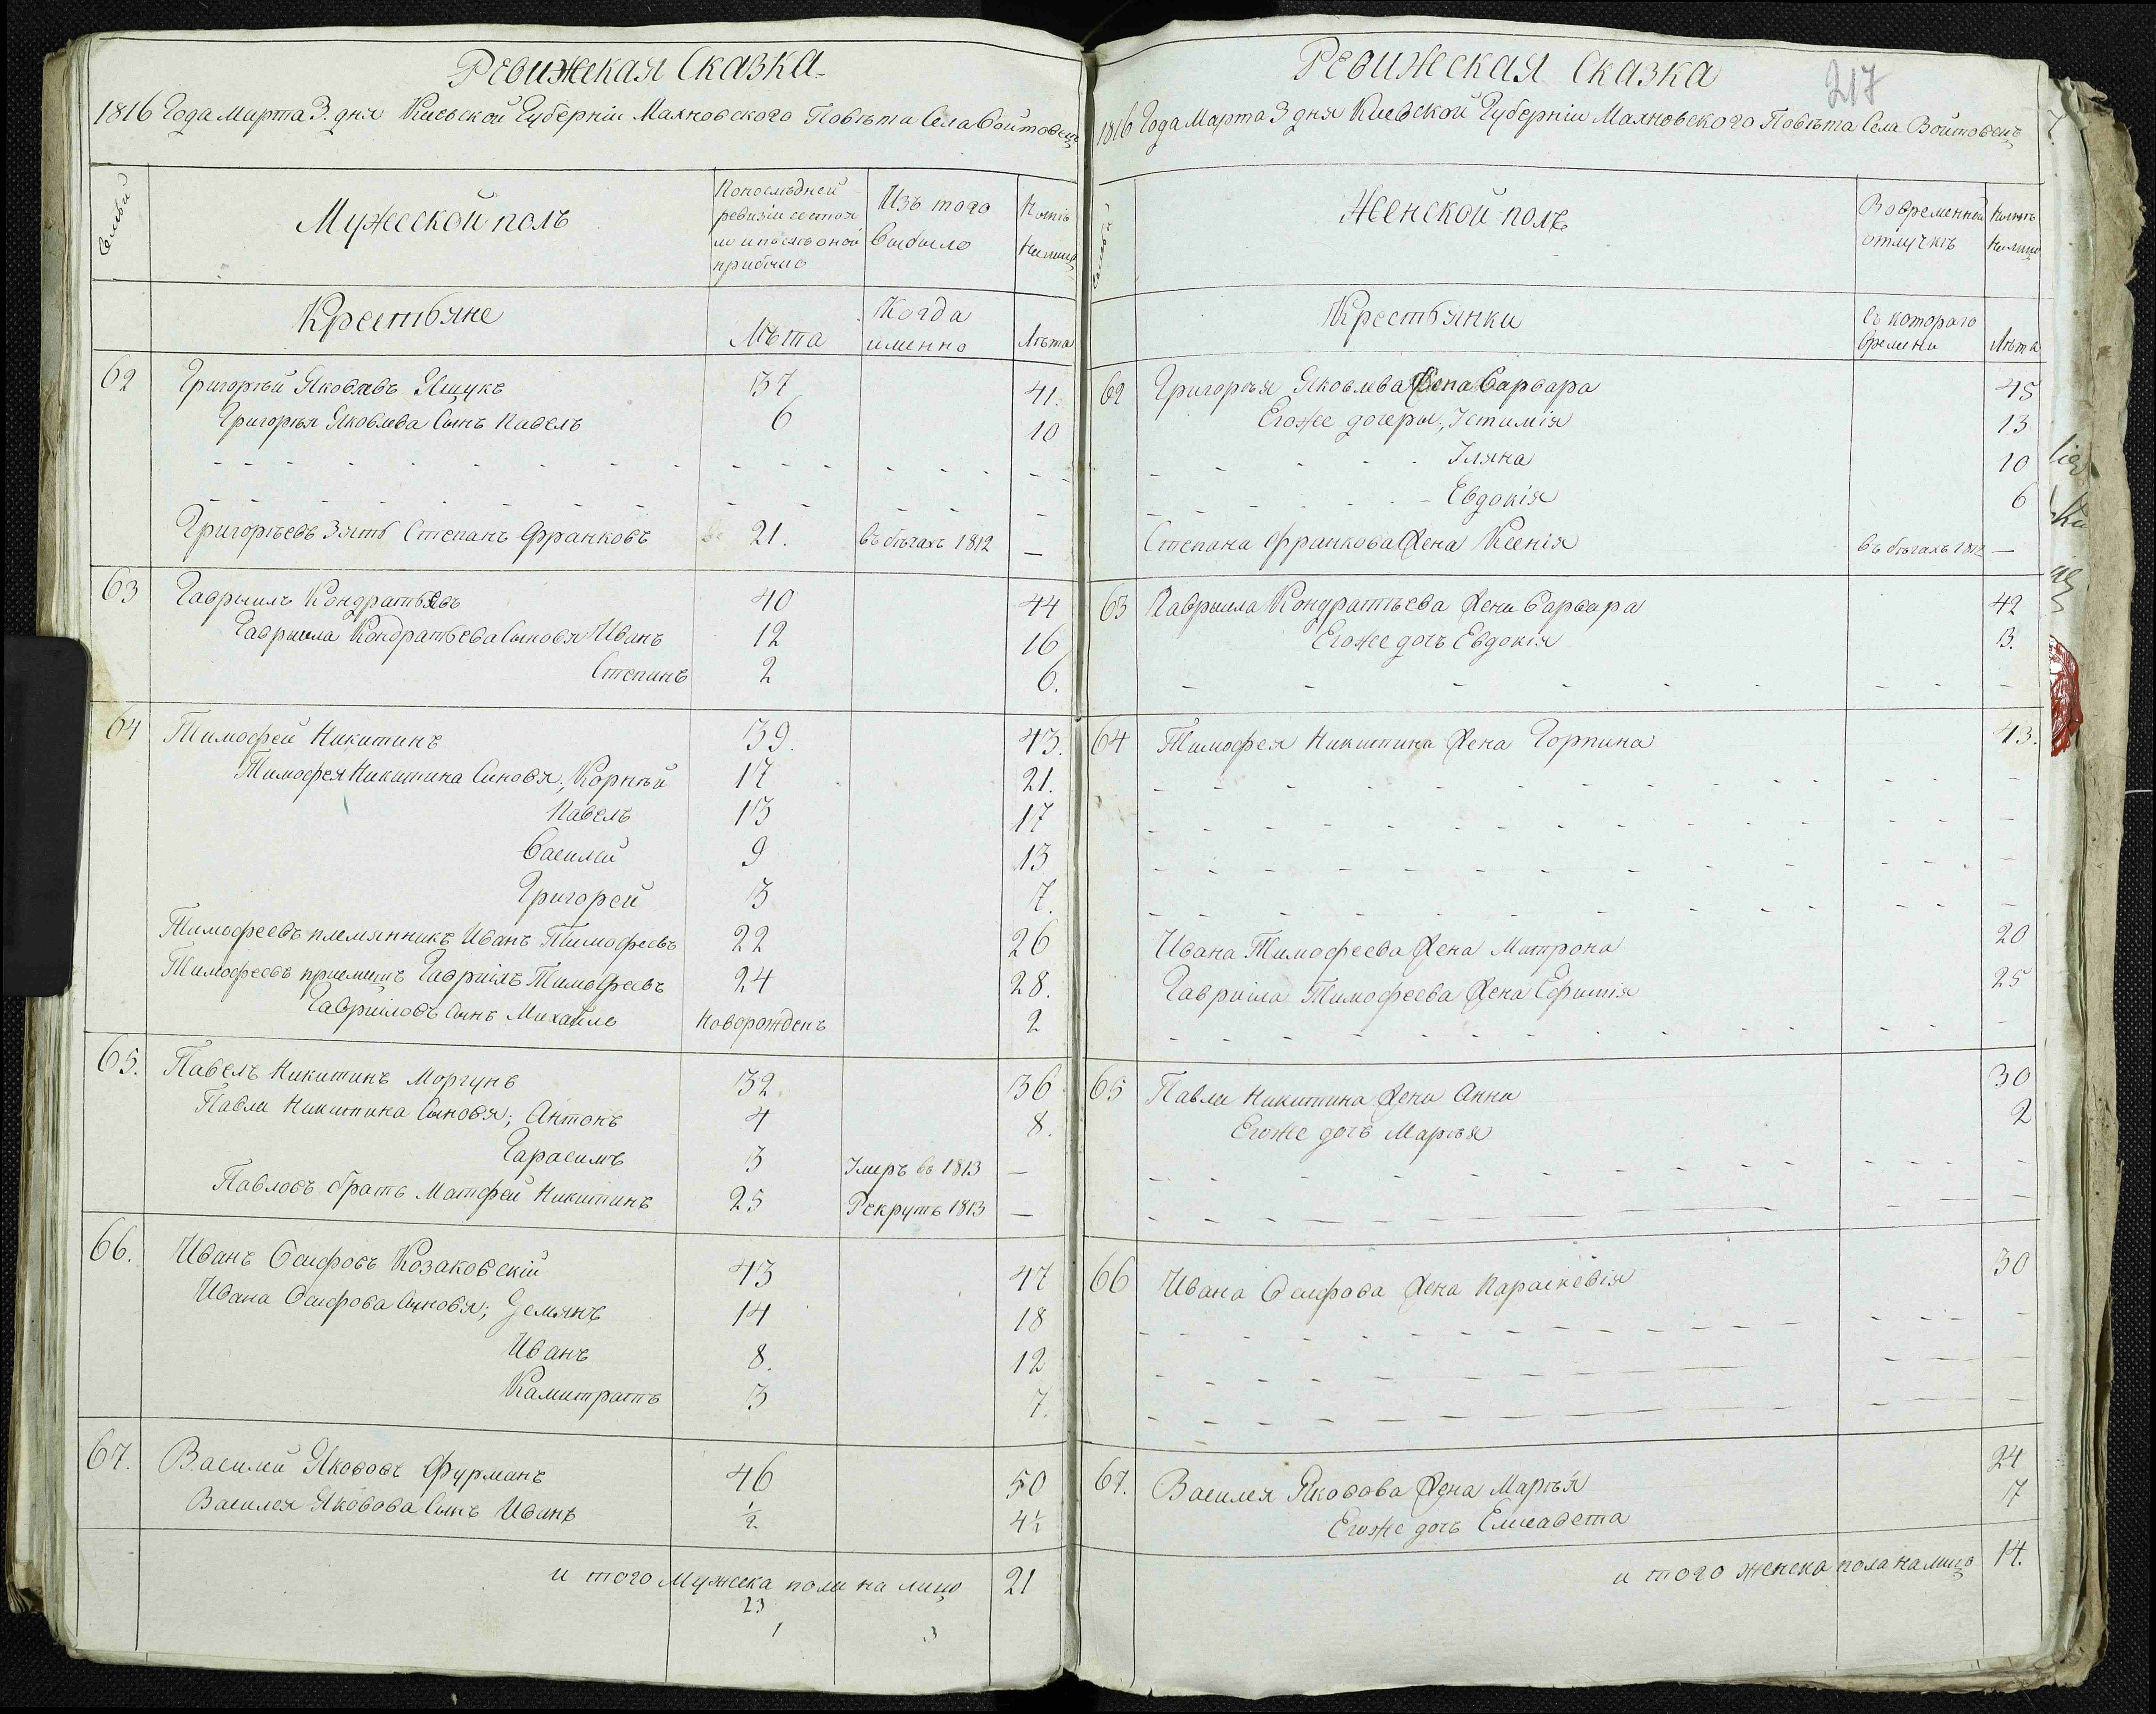 Ревижская Сказка
1816 Года Марта 3. дня Киевской Губерніи Махновского Повѣта Села Войтовецъ
Семьи
Мужеской полъ
Попослѣдней ревизіи состояло и послѣ оной прибыло
Изъ того выбыло
Нынѣ налицо
Крестьяне
Лѣта
Когда именно
Лѣта
62 Григорѣй Яковлевъ Ящукъ 37 41.
Григорѣя Яковлева Сынъ Павелъ 6 10
Григорѣевъ Зять Степанъ Франковъ 21. въ бѣгахъ 1812 —
63 Гаврыилъ Кондратьевъ 40 44
Гаврыила Кондратьева Сыновя Иванъ 12 16
Степанъ 2 6.
64 Тимофей Никитинъ 39. 43.
Тимофея Никитина Сыновя; Корнѣй 17 21.
Павелъ 13 17
Василей 9 13
Григорей 3 7.
Тимофеевъ племянникъ Иванъ Тимофеевъ 22 26
Тимофеевъ приемышъ Гавріилъ Тимофеевъ 24 28.
Гавріиловъ Сынъ Михайло Новорожденъ 2
65. Павелъ Никитинъ Моргунъ 32. 36
Павла Никитина Сыновя; Антонъ 4 8.
Гарасимъ 3 Умеръ въ 1813 —
Павловъ братъ Матфей Никитинъ 25 Рекрутъ 1813 —
66. Иванъ Осифовъ Козаковскій 43 47
Ивана Осифова Сыновя; Демянъ 14 18
Иванъ 8. 12
Калитратъ 3 7.
67. Василий Якововъ Фурманъ 46 50
Василея Яковова Сынъ Иванъ ½ 4½
и того Мужеска пола на лицо 21
23
1 3
217
Ревижская Сказка
1816 Года Марта 3 дня Киевской Губерніи Махновского Повѣта Села Войтовецъ
Семьи
Женской полъ
Вовременной отлучкѣ
Нынѣ налицо
Крестьянки
Съ котораго времени
Лѣта
62 Григорѣя Яковлева Жена Варвара 45
Егоже дочеры; Устимія 13
Уляна 10
Евдокія 6
Степана Франкова Жена Ксенія въ бѣгахъ 1812 —
63 Гаврыила Кондратьева Жена Варвара 42
Егоже дочъ Евдокія 3.
64 Тимофея Никитина Жена Горпина 43.
Ивана Тимофеева Жена Матрона 20
Гавріила Тимофеева Жена Ефимія 25
65 Павла Никитина Жена Анна 30
Егоже дочъ Марѣя 2
66 Ивана Осифова Жена Параскевія 30
67. Василея Яковова Жена Марѣя 24
Егоже дочъ Елисавета 17
и того женска пола налицо 14.